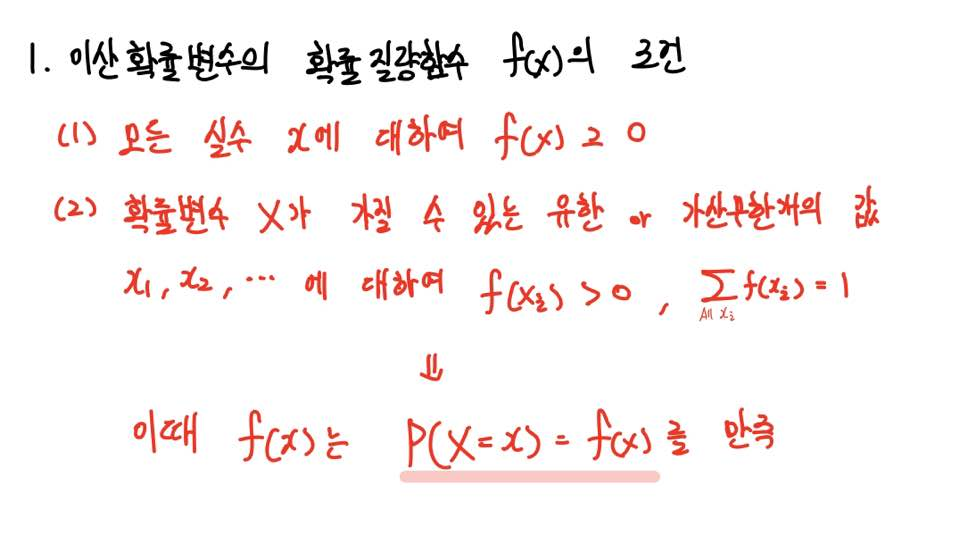 1. 이산확률변수의 확률질량함수 f(x)의 조건
(1) 모든 실수 x에 대하여 f(x) ≥ 0
(2) 확률변수 X가 가질 수 있는 유한 or 가산무한개의 값
x₁, x₂, ⋯ 에 대하여 f(xᵢ) > 0, ∑ f(xᵢ) = 1
All xᵢ
⇓
이때 f(x)는 P(X=x) = f(x)를 만족